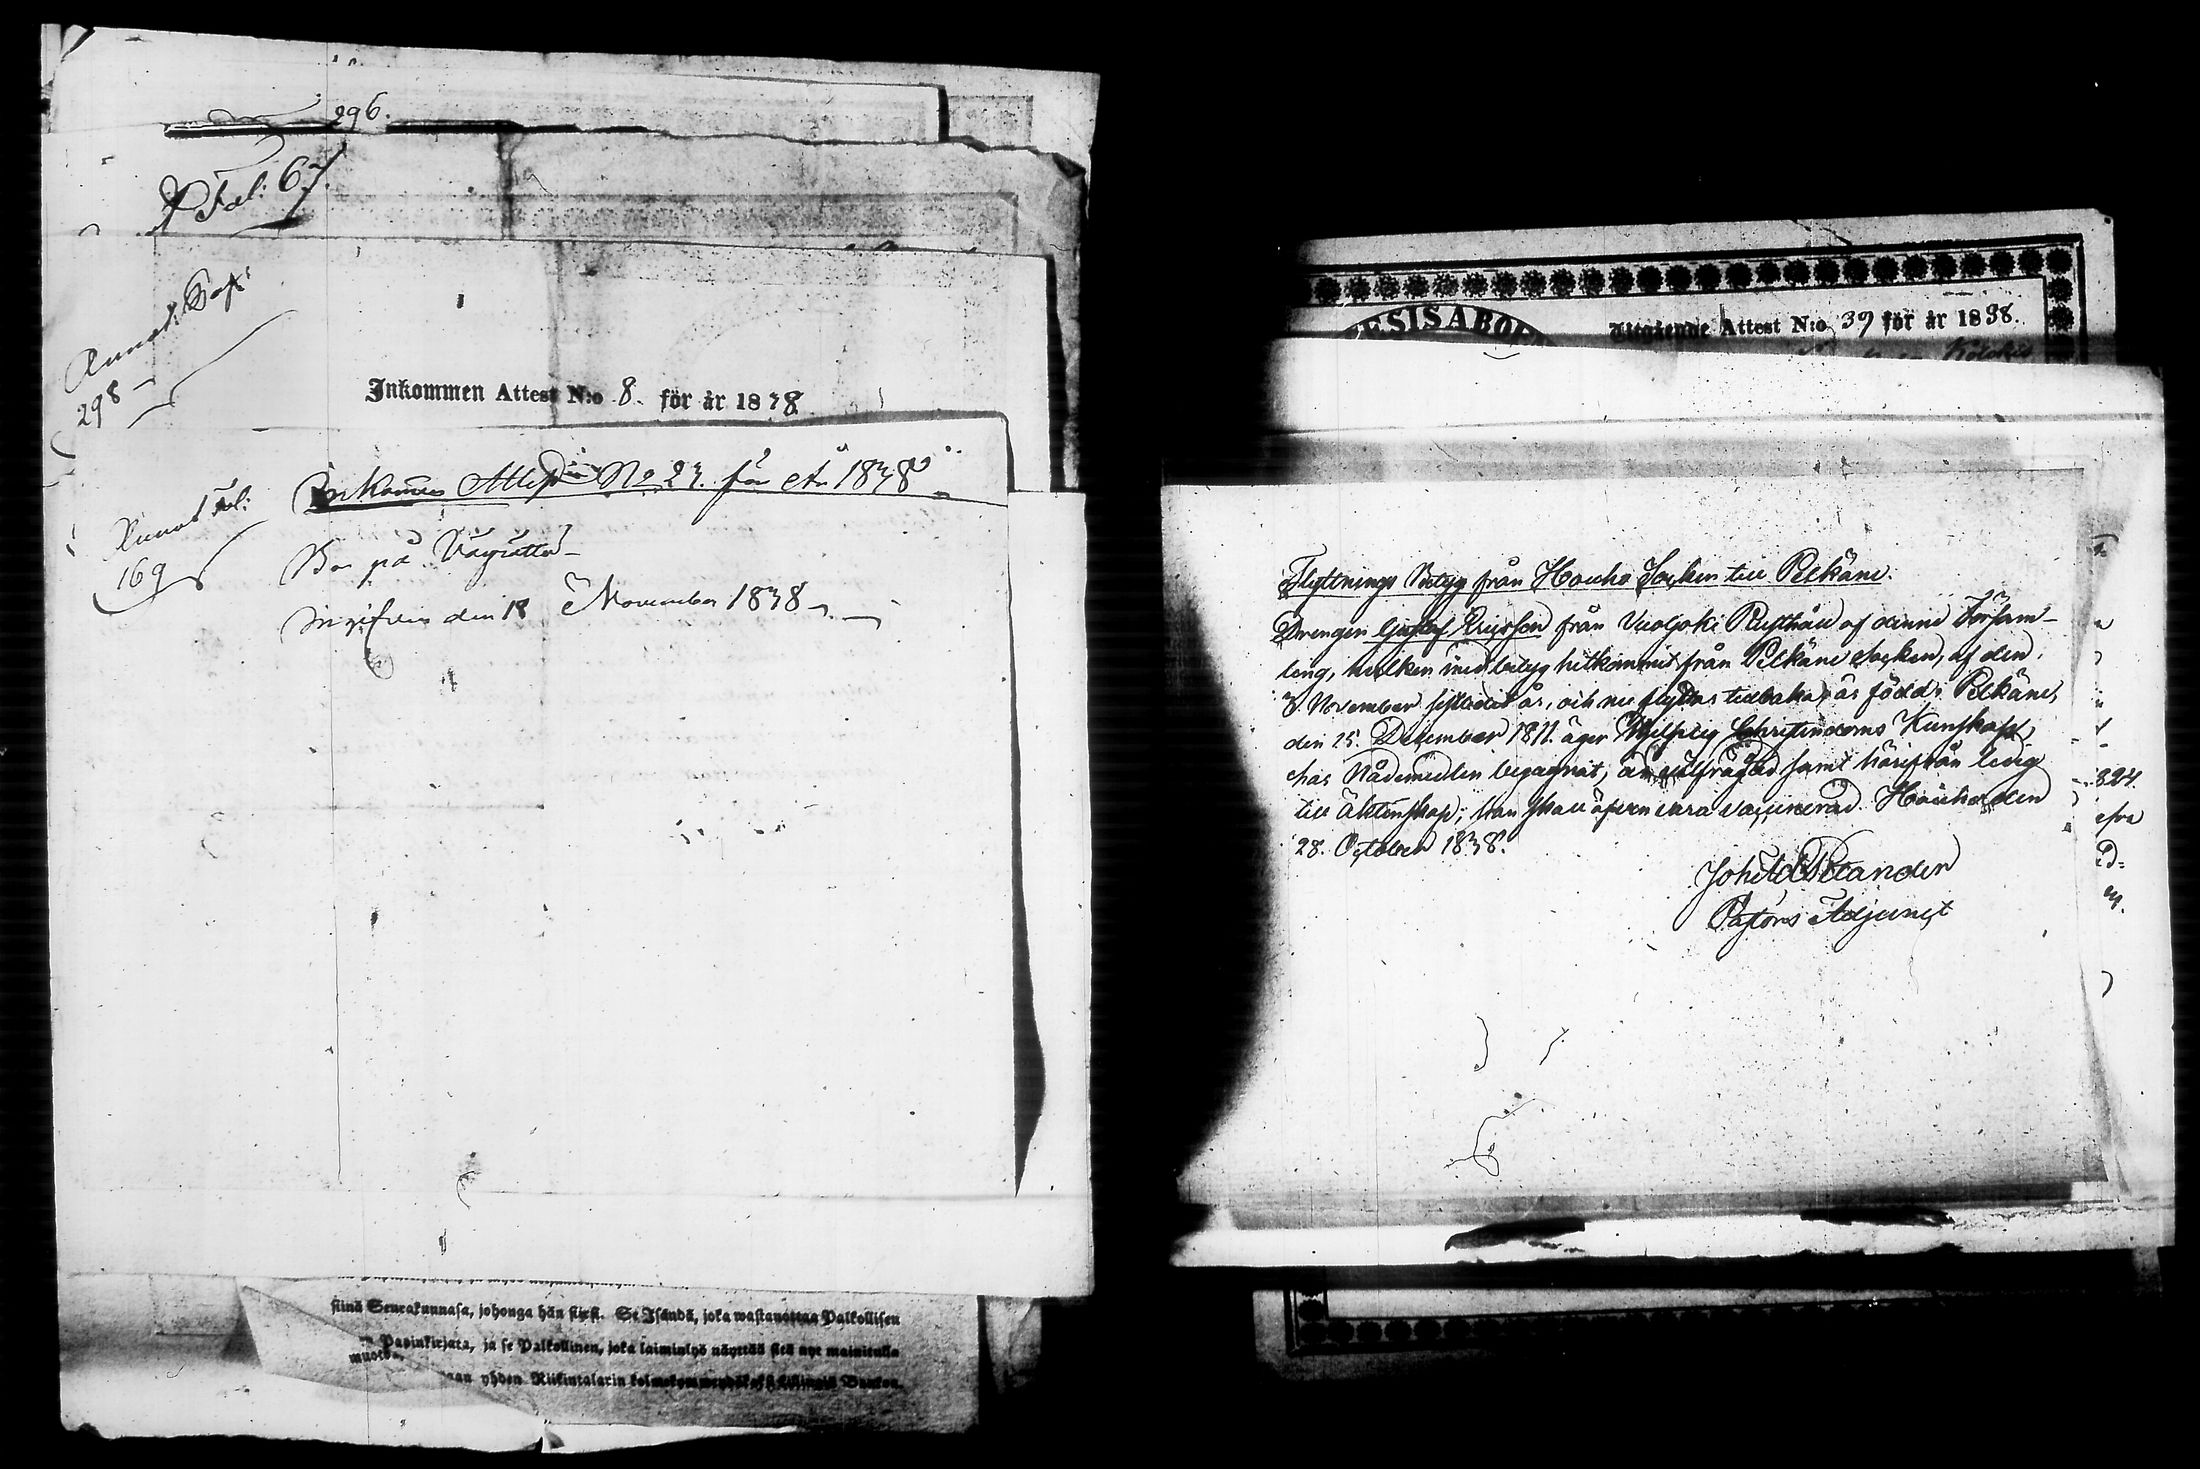 296.
Fol: 67.
298
Inkommen Attest N:o 8. för år 1838
Inkommen Attest No 23. för År 1838
Annot. Fol:
169
Bor på
Ingifven den 18 November 1838
stinä Seurakunnasa, johonga hän siirsi. Se Isändä, joka wastanottaa Palkollisen
Papinkirjata, ja se Palkollinen, joka laiminlyö näyttää sitä nyt mainitulla
muotoa,
yhden Riikintalarin
Utgående Attest N:o 39 för år 1838.
Flyttnings Betyg från Hauho Socken till Pelkäne.
Drengen Gustaf Ericsson från Vuoljoki Rusthåll af denne Försam-
ling, hvilken med betyg hitkommit från Pelkäne Socken, af den
3 November sistledit år, och nu flyttar tillbaka, är född i Pelkäne,
den 25. December 1811. äger Hjelplig Christendoms Kunskap,
har Nådemedlen begagnat, är välfrägdad samt härifrån ledig
till Äktenskap; han skall äfven vara vaccinerad. Hauho den
28. October 1838.
Pastors Adjunct
824